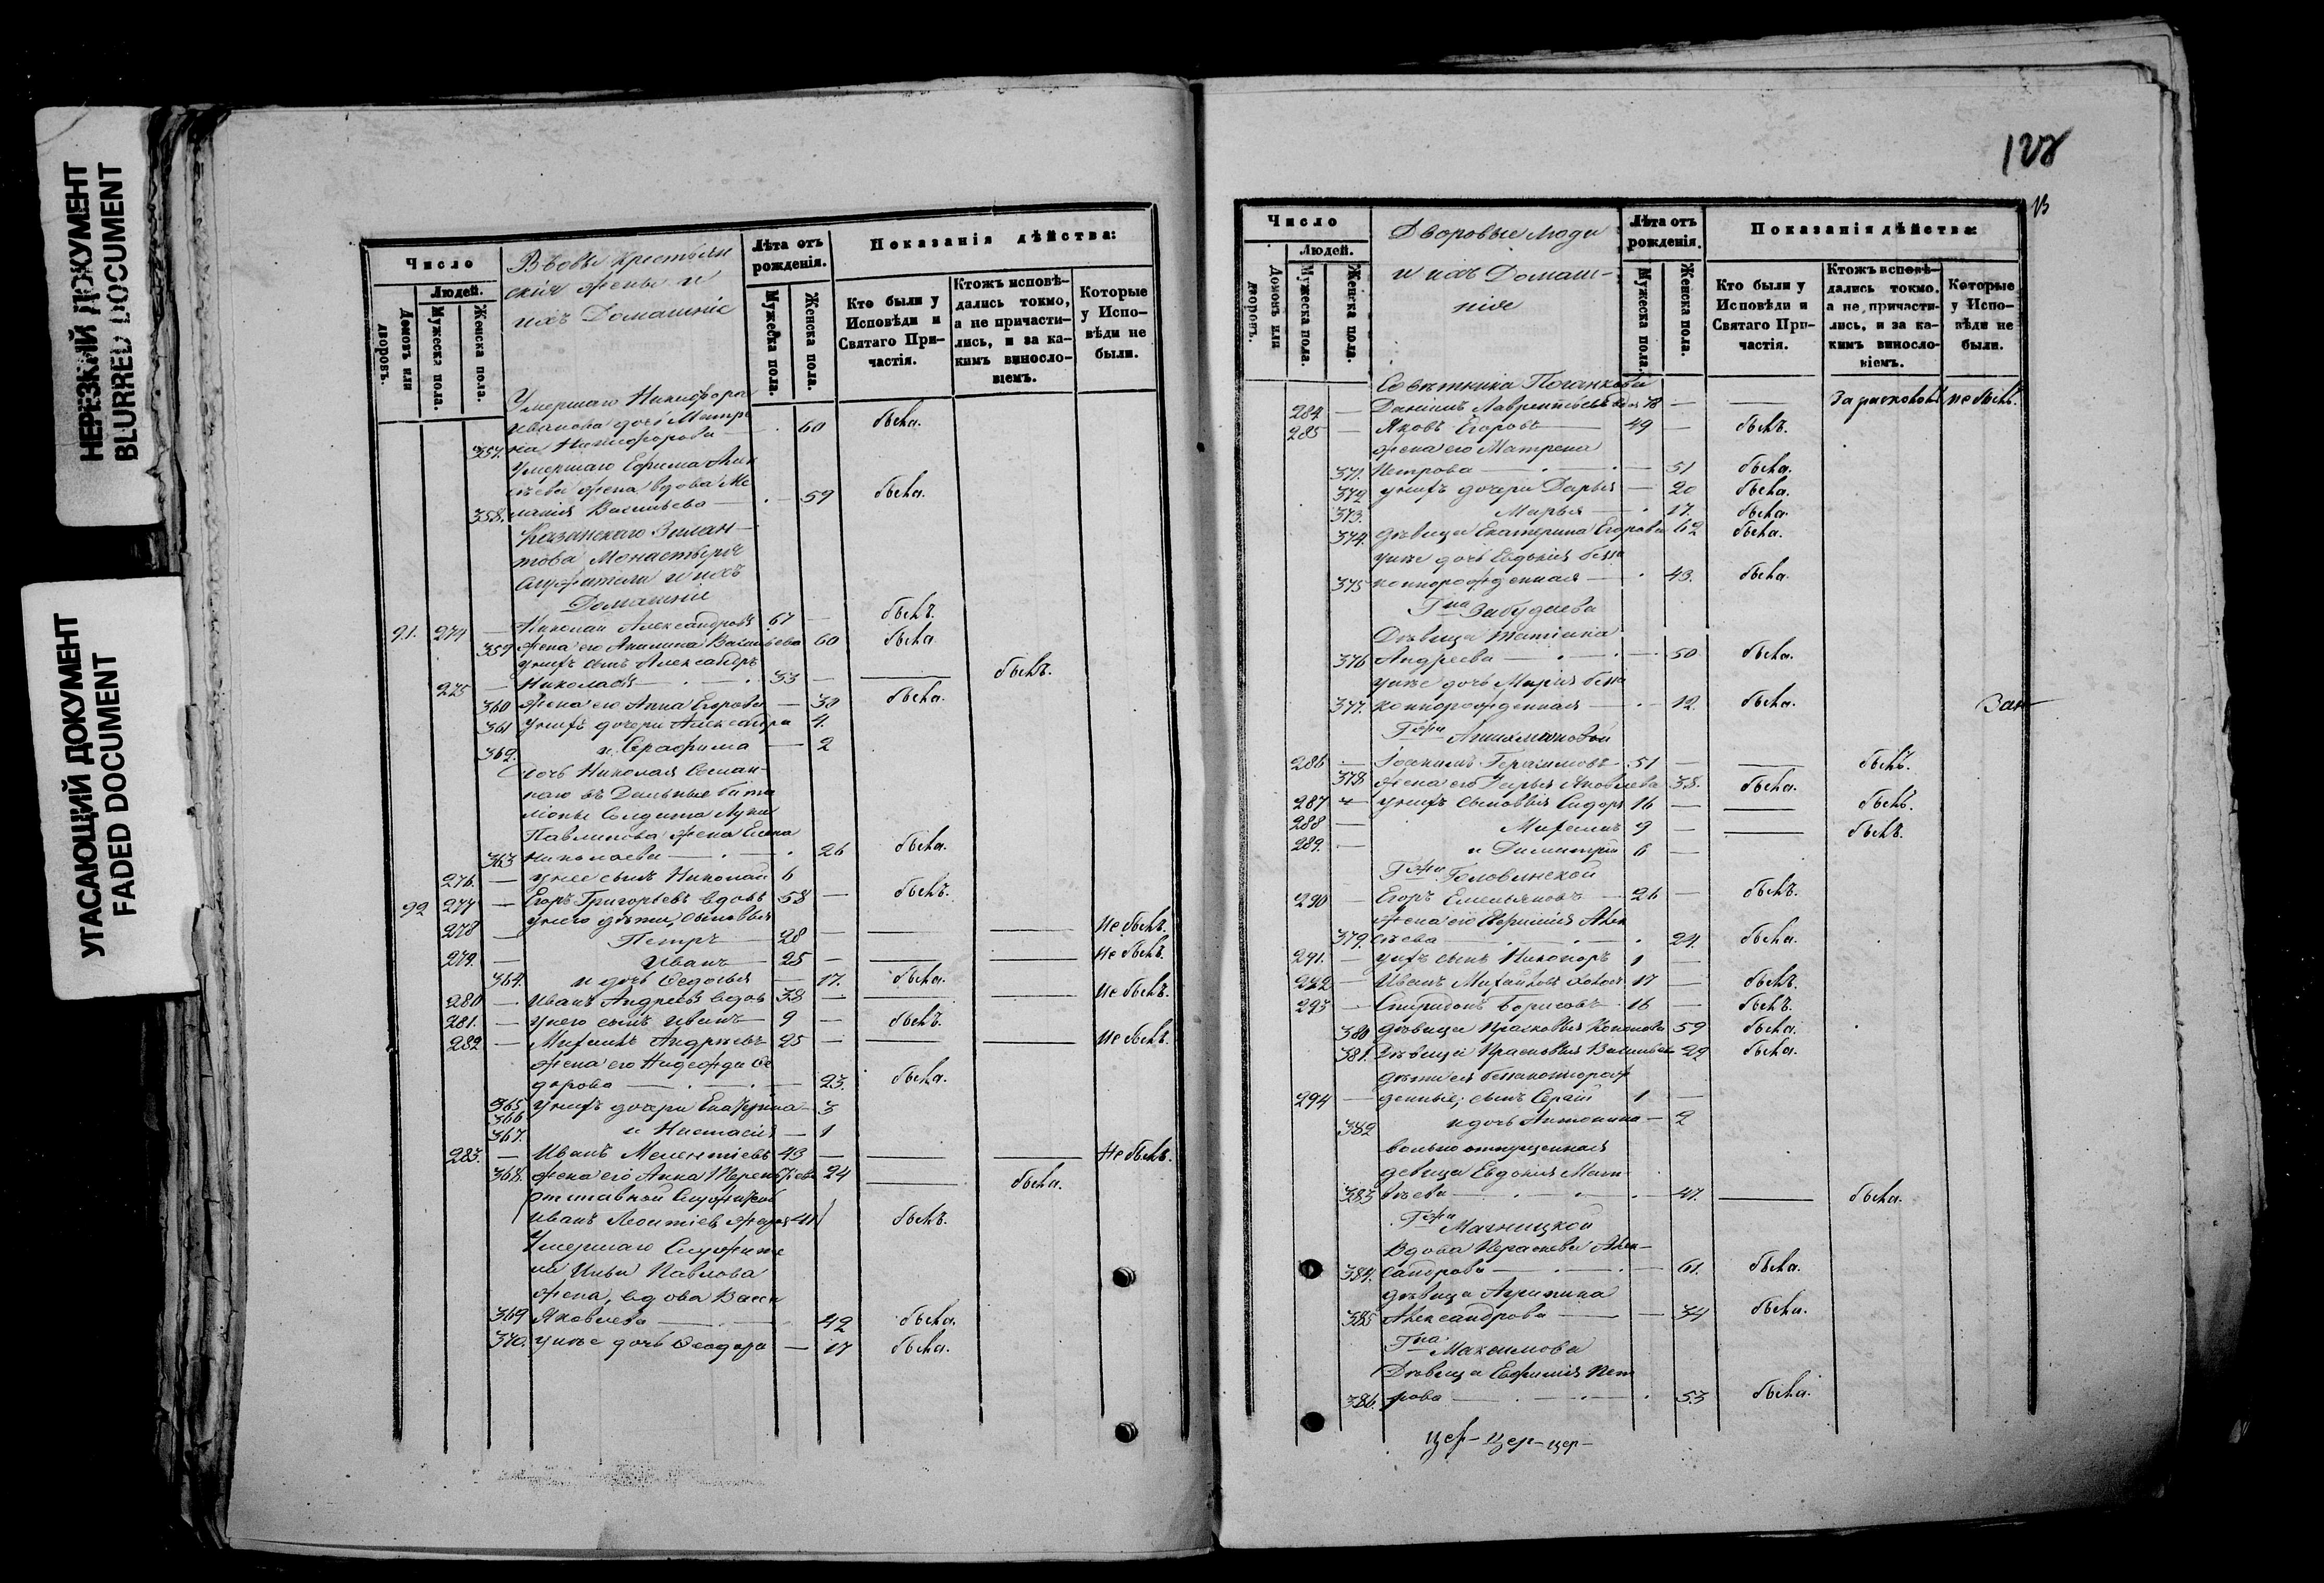 НЕРЕЗКИЙ ДОКУМЕНТ
BLURRED DOCUMENT
УГАСАЮЩИЙ ДОКУМЕНТ
FADED DOCUMENT
Число
Людей.
Домовъ или дворовъ.
Мужеска пола.
Женска пола.
Вдовы крестьян
скія жены и
ихъ Домашніе
Лѣта отъ рожденія.
Мужеска пола.
Женска пола.
Показанія дѣйства:
Кто были у Исповѣди и Святаго Причастія.
Ктожъ исповѣдались токмо, а не причастились, и за какимъ винословіемъ.
Которые у Исповѣди не были.
Умершаго Никифора
Иванова дочь Матре
357. на Никифорова — 60 была.
Умершаго Ефима Алек
сѣева жена вдова Ме
358.ланія Васильева — 59 была.
Казанскаго Зилан-
това Монастыря
Служители и ихъ
Домашніе
91. 274 — Николай Александровъ 67 — былъ.
359 жена его Акилина Васильева 60 была
у нихъ сынъ Александръ
275 — Николаевъ 33 — былъ.
360 жена его Анна Егорова — 30 была.
361 у нихъ дочери Александра 4.
362. и Серафима — 2
Дочь Николая Сослан-
наго въ Дальные бата
ліоны Солдата Луки
Павлинова жена Елена
363 Николаева — 26 была.
276. — у нее сынъ Николай 6
92 277 — Егоръ Григорьевъ вдовъ 58 — былъ.
у него дѣти, сыновья
278 — Петръ — 28 — Не былъ.
279. — Иванъ — 25 — Не былъ.
364. и дочь Ѳедосья — 17. была.
280 — Иванъ Андреевъ вдовъ 38 — Не былъ.
281. — у него сынъ Иванъ — 9 — былъ.
282 — Михаилъ Андреевъ 25 — Не былъ.
жена его Надежда Ѳе
365 дорова — 23. была.
366 у нихъ дочери Екатерина — 3
367. и Настасія — 1
283. — Иванъ Мелентіевъ 43 — Не былъ.
368. жена его Анна Терентьева 24 была.
отставной Служитель
Иванъ Леонтіевъ 41 былъ.
Умершаго Служите
ля Ильи Павлова
жена, вдова Васса
369 Яковлева — 42 была.
370. у нее дочь Ѳеодора — 17 была.
128
Число
Людей.
Домовъ или дворовъ.
Мужеска пола.
Женска пола.
Дворовые люди
и ихъ Домаш-
ніе
Лѣта отъ рожденія.
Мужеска пола.
Женска пола.
Показанія дѣйства:
Кто были у Исповѣди и Святаго Причастія.
Ктожъ исповѣдались токмо, а не причастились, и за какимъ винословіемъ.
Которые у Исповѣди не были.
Совѣтника
284 — Даніилъ Лаврентьевъ 78 — За расколомъ не былъ.
285 — Яковъ Егоровъ 49 — былъ.
жена его Матрена
371. Петрова — 51 была.
372 у нихъ дочери Дарья — 20 была.
373. Марья — 17. была.
374. дѣвица Екатерина Егорова 62 была.
у нее дочь Евдокія безза
375 коннорожденная — 43. была.
Г-на Забудаева
Дѣвица Татіана
376 Андреева — 50 была.
у нее дочь Марія безза
377. коннорожденная — 12. была.
Г-жи
286 — Іоакимъ Герасимовъ 51 — былъ.
378 жена его Дарья Яковлева 38. была.
287 — у нихъ сыновья Сидоръ 16 — былъ.
288 — Михаилъ 9 — былъ.
289. — и Димитрій 6 —
Г-жи Головинской
290 — Егоръ Емельяновъ 26 — былъ.
жена его Ефимія Алек
379. сѣева — 24. была.
291. — у нихъ сынъ Никаноръ 1 —
292 — Иванъ Михайловъ 17 — былъ.
293 — Спиридонъ Борисовъ 16 — былъ.
380 дѣвица Прасковья Кононова 59 была.
381. Дѣвица Прасковья Васильева 22 была.
дѣти ея беззаконнорож
294 — денные; сынъ Сергій 1 —
382 и дочь Антонина — 2
вольно отпущенная
девица Евдокія Мат
383 вѣева — 47. была.
Г-жи Магницкой
Вдова Параскева Алек-
384. сандрова — 61. была.
дѣвица Агрипина
385 Александрова — 34 была.
Г-на Максимова
Дѣвица Ефимія Пет
386. рова — 53 была.
цер- цер- цер-